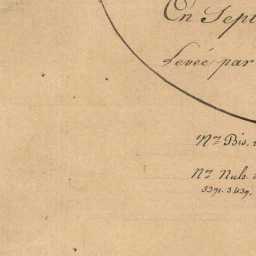 En Sept
Levée par
Nᵒˢ Bis.
Nᵒˢ Nuls
3391. 3439.